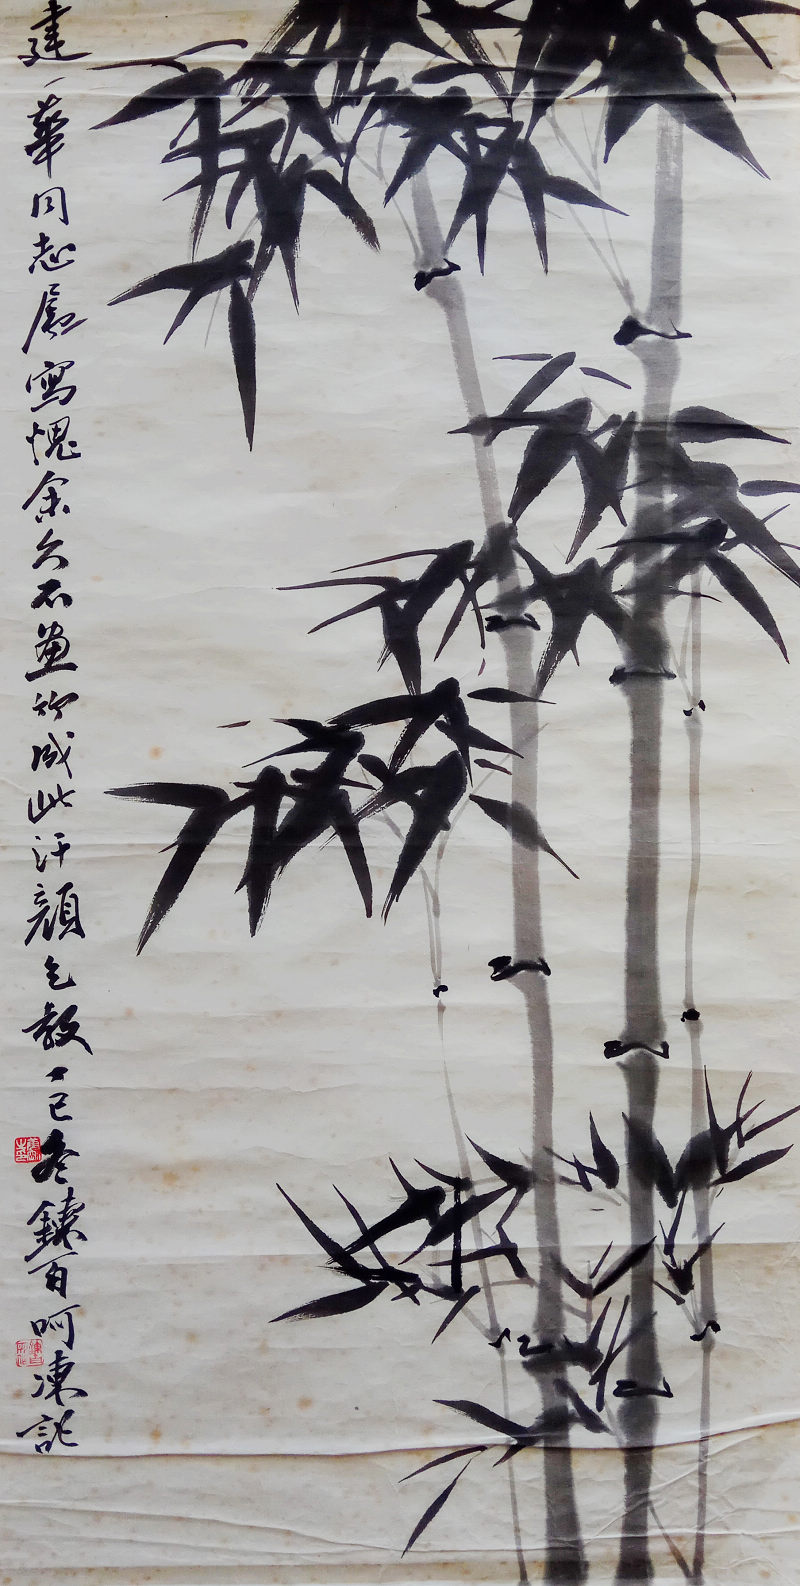 建華同志屬寫愧余久不畫竹成此汗顏乞教丁巳冬鐃百呵凍記